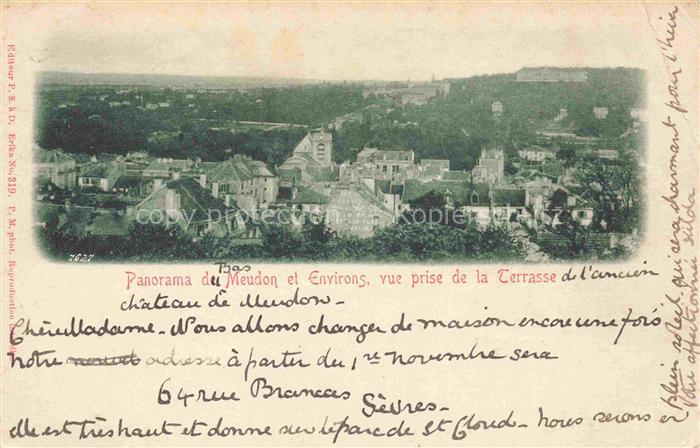 Editeur P. S. à D. Erika No. 319 P. M. phot. Reproduction
7627
Panorama du Bas Meudon et Environs, vue prise de la Terrasse de l'ancien
château de Meudon -
Chère Madame - Nous allons changer de maison encore une fois
notre adresse à partir du 1re novembre sera
64 rue Brancas
Sèvres -
elle est très haut et donne sur le parc de St Cloud - nous serons en
plein soleil qui sera charmant pour l'hiver
Votre affectionnée
copyright picture Kopierschutz